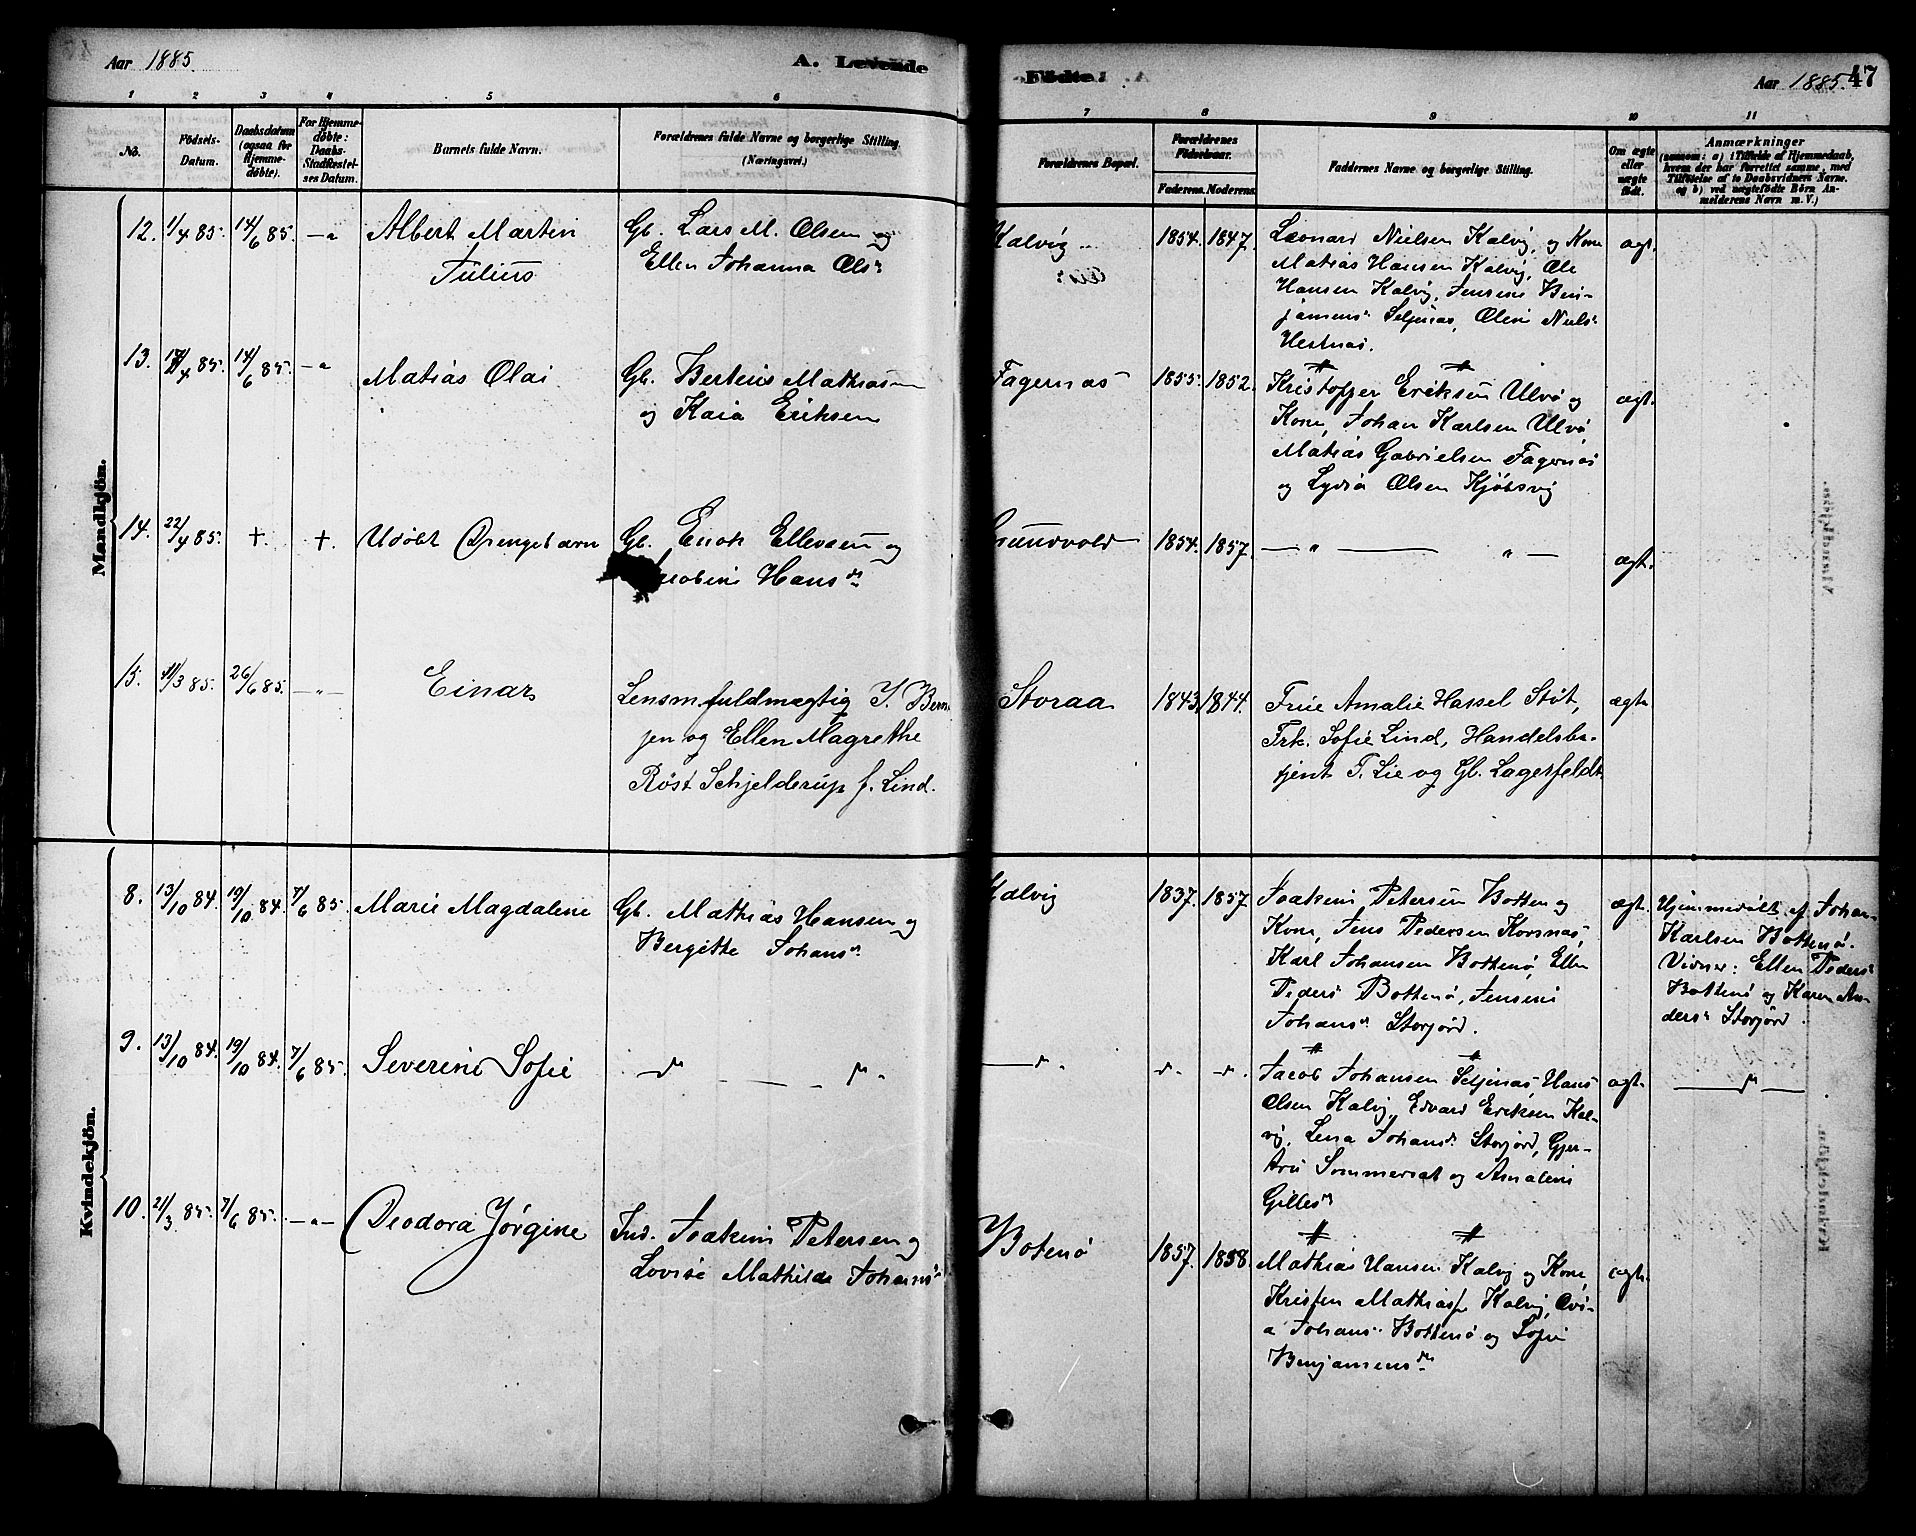 Aar 1885.
A. Levende
Fødte.
Aar 1885. 47
1 2 3 4 5 6 7 8 9 10 11
No.
Fødsels-
Datum.
Daabsdatum
(ogsaa for
Hjemme-
døbte).
For Hjemme-
døbte:
Daabs-
Stadfæstel-
ses Datum.
Barnets fulde Navn.
Forældrenes fulde Navne og borgerlige Stilling.
(Næringsvei.)
Forældrenes Bopæl.
Forældrenes
Fødselsaar.
Faderens. Moderens.
Faddernes Navne og borgerlige Stilling.
Om ægte
eller
uægte
født.
Anmærkninger
(saasom: a) i Tilfælde af Hjemmedaab,
hvem der har forrettet samme, med
Tilføielse af to Daabsvidners Navne.
og b) ved uægtefødte Børn An-
melderens Navn m. V.)
Mandkjön.
12. 1/4 85. 14/6 85. —"
Albert Martin
Julius
Gb. Lars M. Olsen og
Ellen Johanna Olsdr
Kalvig
1854. 1847.
Leonard Nielsen Kalvig, og Kone
Matias Hansen Kalvig, Ole
Hansen Kalvig, Jensine Ben-
jamensdr Seljenæs, Oline Nielsdr
Hestnæs.
ægt.
13. 4 85. 14/6 85. —"
Matias Olai
Gb. Berteus Mathiasen
og Kaia Eriksen
Fagernæs
1855. 1852.
Kristoffer Eriksen Ulvø og
Kone, Johan Karlsen Ulvø,
Matias Gabrielsen Fagernæs
og Lydia Olsen Kjøbsvig
ægt.
14. 22/4 85. +. +.
Udøbt Drengebarn
Gb. Enok Ellevsen og
Hansdr
1854. 1857.
— " — " —
ægt.
15. 11/3 85. 26/6 85. — " —
Einar
Lensm.fuldmægtig J. Bern
jen og Ellen Magrethe
Røst Schjelderup f. Lind.
Storaa
1843. 1844.
Frue Amalie Hassel Støt,
Frk. Sofie Lind, Handelsbe-
tjent T. Lie og Gb. Lagerfeldt
ægte
Kvindekjön.
8. 13/10 84. 19/10 84. 7/6 85.
Marie Magdalene
Gb. Mathias Hansen og
Bergitte Johansdr
Kalvig
1837. 1857.
Joakim Petersen Botten og
Kone, Jens Pedersen Korsnæs,
Karl Johansen Bottenø, Ellen
Pedersdr Bottenø, Jensine
Johansdr Storjord.
ægt.
Hjemmedøbt af Johan
Karlsen Bottenø.
Vidner: Ellen Pedersdr
Bottenø og Karen An-
dersdr Storjord.
9. 13/10 84. 19/10 84. 7/6 85.
Severine Sofie
— " — — " —
— " —
" "
Jacob Johansen Seljenæs, Hans
Olsen Kalvig, Edvard Eriksen Kal-
vig, Lena Johansdr Storjord, Gjer-
tru Sommerset og Amaline
Gillesdr
ægt.
— " —
10. 21/3 85. 7/6 85. — " —
Deodora Jørgine
Ind. Joakim Petersen og
Lovise Mathilde Johansdr
Botenø
1857. 1858.
Mathias Hansen Kalvig og Kone,
Kristen Mathias Kalvig, Ovi-
a Johansdr Bottenø og Sofie
Benjamensdr
ægt.